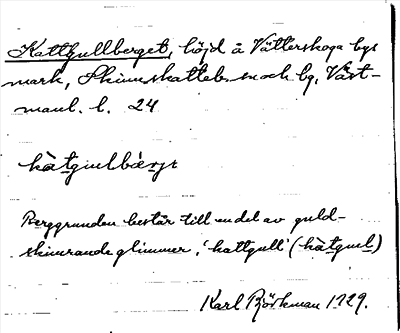 Kattgullberget, höjd å Vätterskoga bys
mark, Skinnskattebergs sn och bg, Väst-
manl. l. 24
kàtgɯlbæ̀rjt
Berggrunden består till en del av guld-
skimrande glimmer, 'kattgull' (kàtgɯl)
Karl Björkman 1929.